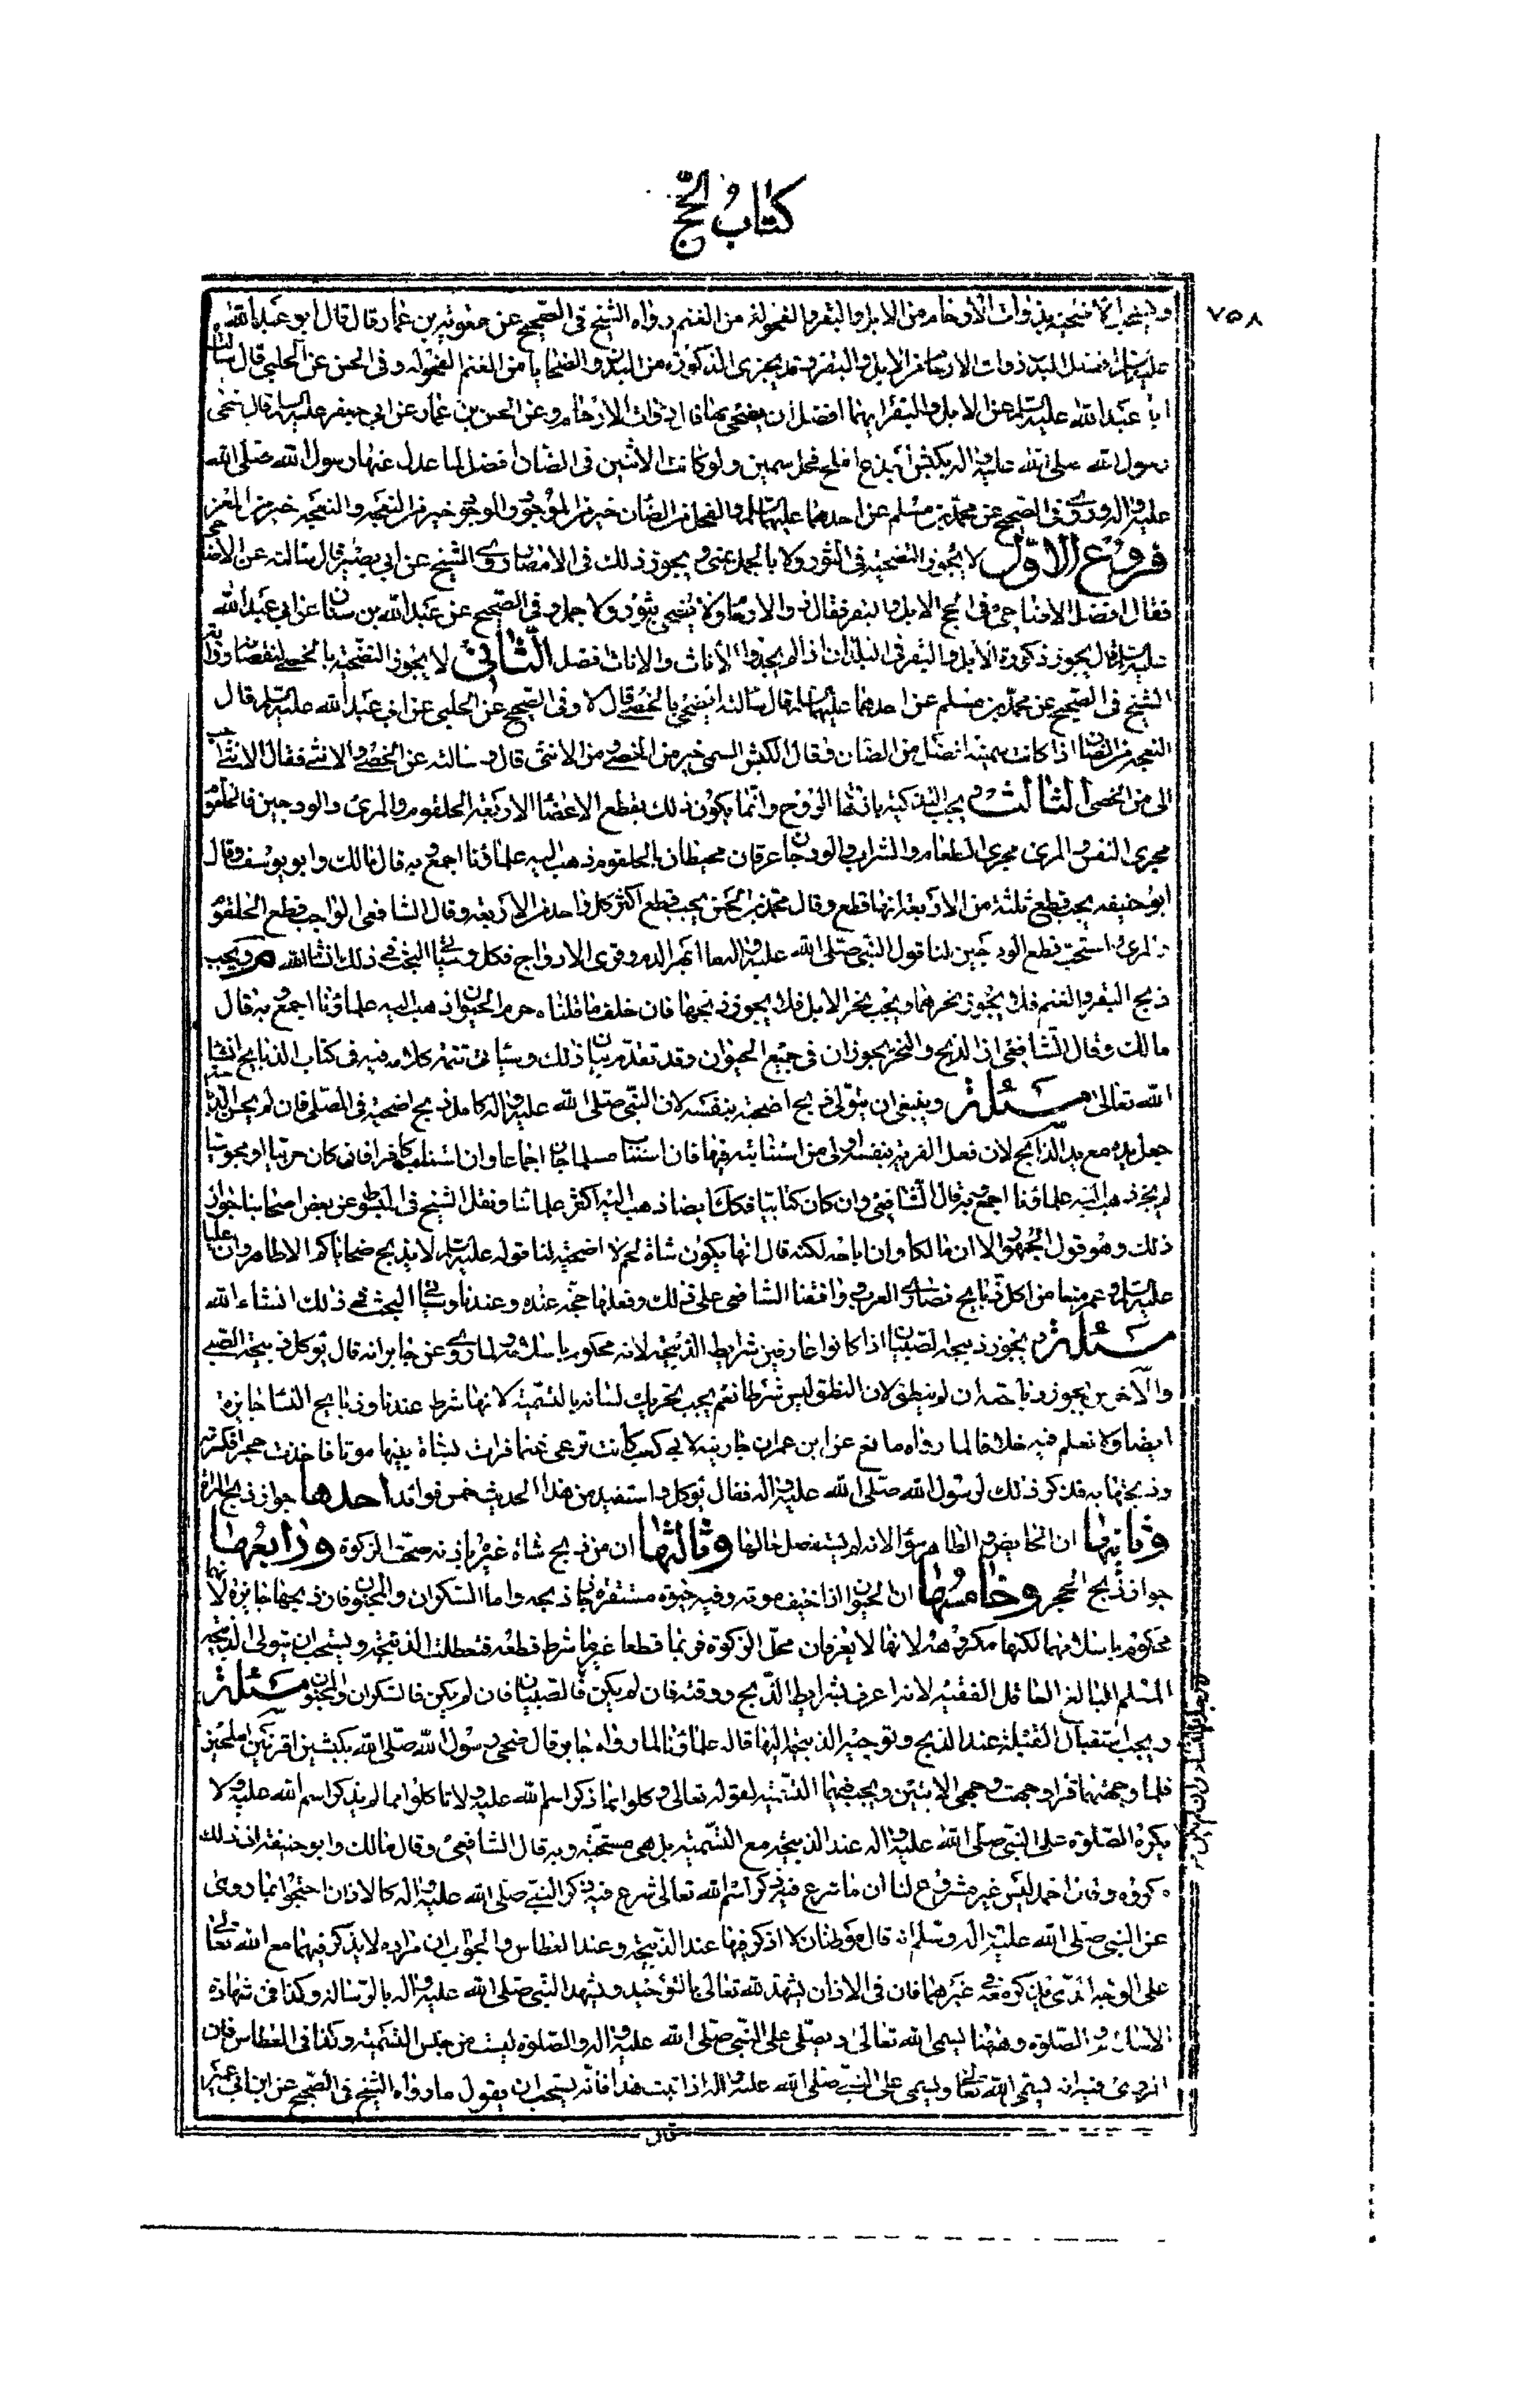 كتاب الحج
٧٥٨
ويستحب الاضحية بذوات الارحام من الابل والبقر والفحولة من الغنم رواه الشيخ في الصحيح عن معوية بن عمار قال قال ابو عبد الله
عليه السلام افضل البدن ذوات الارحام من الابل والبقر وقد يجزى الذكورة من البدن والضحايا من الغنم الفحولة وفي الحسن عن الحلبي قال سالت
ابا عبد الله عليه السلام عن الابل والبقر ايهما افضل ان يضحى بها قال ذوات الارحام وعن الحسن بن عمار عن ابي جعفر عليه السلام قال ضحى
رسول الله صلى الله عليه واله بكبش اجذع املح فحل سمين ولو كانت الانثيين في الضان افضل لما عدل عنها رسول الله صلى الله
عليه واله وروى في الصحيح عن محمد بن مسلم عن احدهما عليهما السلام والفحل من الضان خير من الموجوء والموجوء خير من النعجة والنعجة خير من المعز
فروع الاول لا يجوز التضحية في الثور ولا بالجمل بمنى ويجوز ذلك في الامصار روى الشيخ عن ابي بصير قال سالته عن الاضاحي
فقال افضل الاضاحي في الحج الابل والبقر فقال ذو الارحام ولا يضحى بثور ولا جمل وفي الصحيح عن عبد الله بن سنان عن ابي عبد الله
عليه السلام قال يجوز ذكورة الابل والبقر في البلدان اذا لم يجدوا الاناث والاناث افضل الثاني لا يجوز التضحية بالخصى لنقصه رواه
الشيخ في الصحيح عن محمد بن مسلم عن احدهما عليهما السلام قال سالته ايضحى بالخصى قال لا وفي الصحيح عن الحلبي عن ابي عبد الله عليه السلام قال
النعجة من الضان اذا كانت سمينة افضل من الضان وقال الكبش السمين خير من الخصى ومن الانثى قال وسالته عن الخصى والانثى فقال الانثى احب
الى من الخصى الثالث يجب التذكية بانهاء الروح وانما يكون ذلك بقطع الاعضاء الاربعة الحلقوم والمرئ والودجين فالحلقوم
مجرى النفس والمرئ مجرى الطعام والشراب والودجان عرقان محيطان بالحلقوم ذهب اليه علماؤنا اجمع وبه قال مالك وابو يوسف وقال
ابو حنيفه يجب قطع ثلثة من الاربعة ايها قطع وقال محمد بن الحسن يجب قطع اكثر كل واحد من الاربعة وقال الشافعي الواجب قطع الحلقوم
والمرئ واستحب قطع الودجين لنا قول النبي صلى الله عليه واله ما انهر الدم وفرى الاوداج فكل وسياتي البحث في ذلك انشاء الله ويجب
ذبح البقر والغنم فلا يجوز نحرهما ويجب نحر الابل فلا يجوز ذبحها فان خلف ما قلناه حرم الحيوان ذهب اليه علماؤنا اجمع وبه قال
مالك وقال الشافعي ان الذبح والنحر يجوزان في جميع الحيوان وقد تقدم بيان ذلك وسياتي تتمة كلامه فيه في كتاب الذبايح انشاء
الله تعالى مسئلة وينبغي ان يتولى ذبح اضحيته بنفسه لان النبي صلى الله عليه واله كان يذبح اضحيته في المصلى فان لم يحسن الذباحة
جعل يده مع يد الذابح لان فعل القربة بنفسه اولى من استنابته فيها فان استناب مسلما جاز اجماعا وان استناب كافرا فان كان حربيا او مجوسيا
لم يجز ذهب اليه علماؤنا اجمع وبه قال الشافعي وان كان كتابيا فكك ايضا ذهب اليه اكثر علمائنا ونقل الشيخ في المبسوط عن بعض اصحابنا جواز
ذلك وهو قول الجمهور الا ان مالكا وان اباحه لكنه قال انها يكون شاة لحم لا اضحية لنا قوله عليه السلام لا يذبح ضحاياكم الا طاهر وان عليا
عليه السلام وعمر منعا من اكل ذبايح نصارى العرب ووافقنا الشافعي على ذلك وفعلهما حجة عنده وعندنا وسياتي البحث في ذلك انشاء الله
مسئلة ويجوز ذبيحة الصبيان اذا كانوا عارفين شرايط الذبيحة لانه محكور باسلامه ولما روى عن جابر انه قال يؤكل ذبيحة الصبي
والاخرس يجوز ذباحته ان لم ينطق لان النطق ليس شرطا نعم يجب تحريك لسانه بالتسمية لانها شرط عندنا وذبايح النساء جايزة
ايضا ولا نعلم فيه خلافا لما رواه مانع عن ابن عمر ان جارية لابي كعب كانت ترعى غنما فرات بشاة منها موتا فاخذت حجرا فكسرته
وذبحتها به فذكر ذلك لرسول الله صلى الله عليه واله فقال يؤكل واستفيد من هذا الحديث خمس فوائد احدها جواز ذبح المراة
وثانيها ان الحايض والطاهر سؤالا لانه لم يستفصل حالها وثالثها ان من ذبح شاة غيره باذنه صحت الزكوة ورابعها
جواز ذبح الحجر وخامسها ان الحيوان اذا خيف موته وفيه حيوة مستقرة جاز ذبحه واما السكران والمجنون فان ذبحها جايزة لانهما
محكوم باسلامهما لكنها مكروهة لانهما لا يعرفان محل الزكوة فربما قطعا غير ما شرط قطعه فتعطلت الذبيحة ويستحب ان يتولى الذبيحة
المسلم البالغ العاقل الفقيه لانه اعرف بشرايط الذبح ووقته فان لم يكن فالصبيان فان لم يكن فالسكران والمجنون مسئلة
ويجب استقبال القبلة عند الذبح وتوجيه الذبيحة اليها قاله علماؤنا لما رواه جابر قال ضحى رسول الله صلى الله بكبشين اقرنين املحين
فلما وجههما قرا وجهت وجهي الايتين ويجب فيها التسمية لقوله تعالى وكلوا مما ذكر اسم الله عليه ولا تاكلوا مما لم يذكر اسم الله عليه ولا
يكره الصلوة على النبي صلى الله عليه واله عند الذبيحة مع التسمية بل هي مستحبة وبه قال الشافعي وقال مالك وابو حنيفه ان ذلك
مكروه وقال احمد ليس غير مشروع لنا ان ما شرع فيه ذكر اسم الله تعالى شرع فيه ذكر النبي صلى الله عليه واله كالاذان احتجوا بما روى
عن النبي صلى الله عليه واله وسلم انه قال موطنان لا اذكر فيها عند الذبيحة وعند العطاس والجواب ان مراده لا يذكر فيهما مع الله تعالى
على الوجه الذي يذكره في غيرهما فان في الاذان يشهد لله تعالى بالتوحيد ويشهد النبي صلى الله عليه واله بالرسالة وكذا في شهادة
الاسلام والصلوة وههنا يسمى الله تعالى ويصلي على النبي صلى الله عليه واله والصلوة ليست من جنس التسمية وكذا في العطاس فان
المروى فيه انه يسمى الله تعالى ويسمى على النبي صلى الله عليه واله اذا ثبت هذا فانه يستحب ان يقول ما رواه الشيخ في الصحيح عن ابن ابي عمير
قال